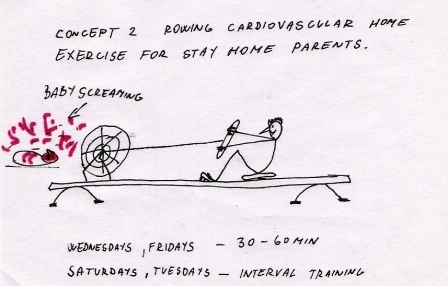 CONCEPT 2 ROWING CARDIOVASCULAR HOME
EXERCISE FOR STAY HOME PARENTS.
BABY SCREAMING
WEDNESDAYS, FRIDAYS - 30-60 MIN
SATURDAYS, TUESDAYS - INTERVAL TRAINING